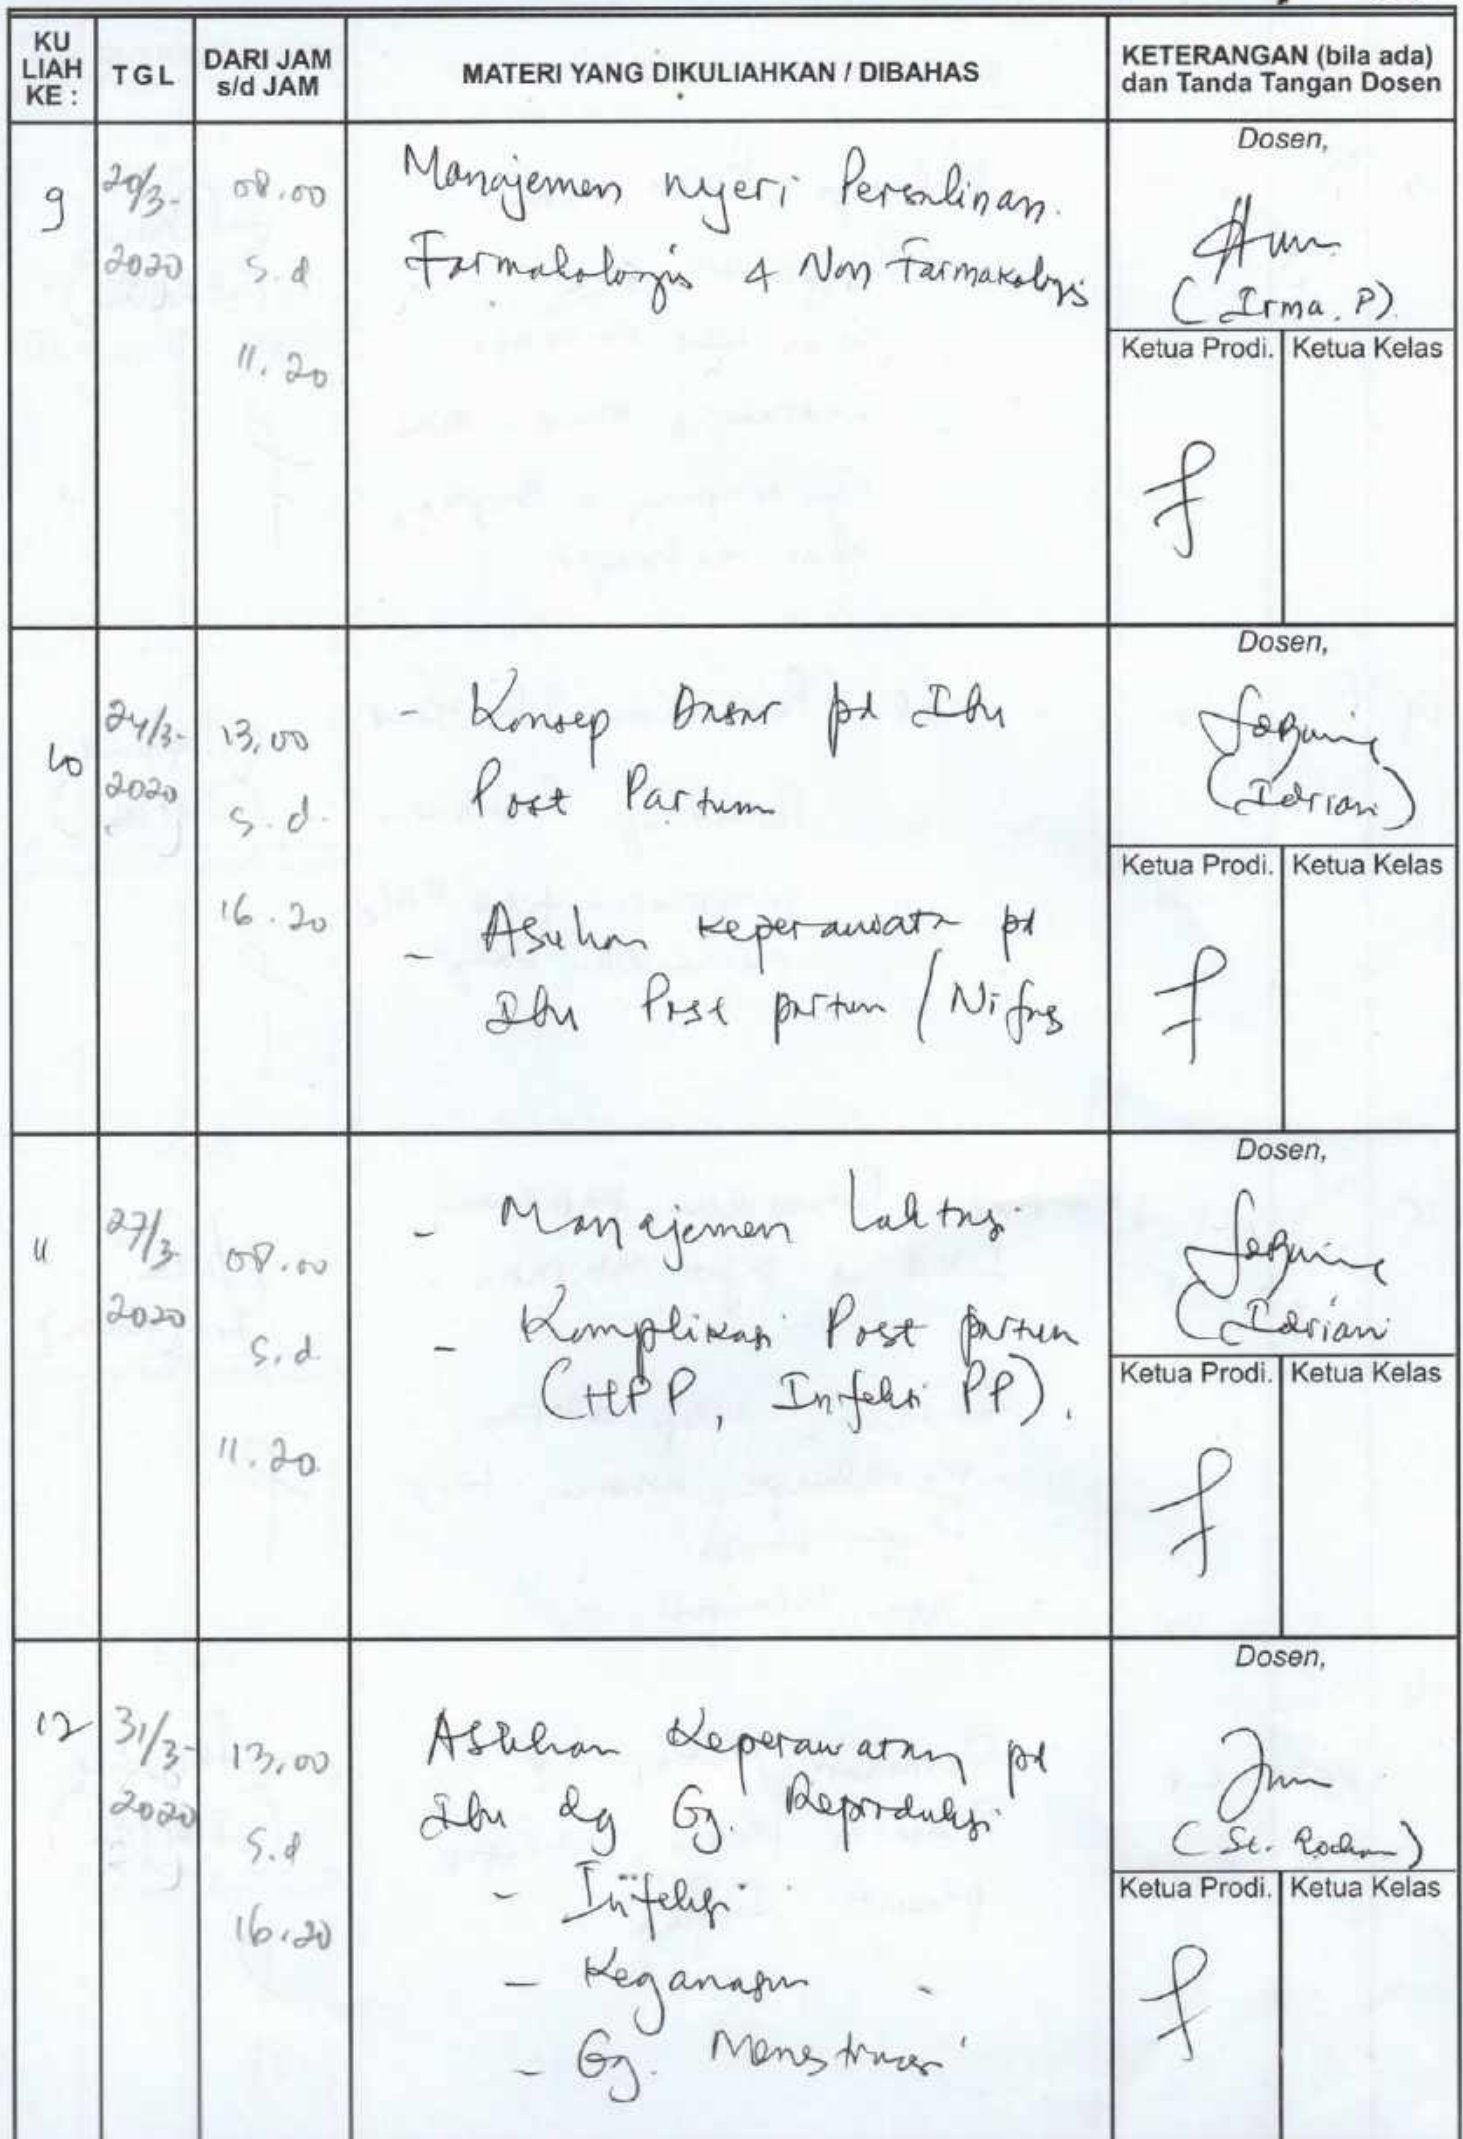 KU LIAH KE : TGL DARI JAM s/d JAM MATERI YANG DIKULIAHKAN / DIBAHAS KETERANGAN (bila ada) dan Tanda Tangan Dosen
9 20/3- 2020 08.00 s.d 11.20
Manajemen nyeri Persalinan.
Farmakologis & Non Farmakologis
Dosen,
(Irma. P)
Ketua Prodi. Ketua Kelas
10 24/3- 2020 13.00 s.d. 16.20
- Konsep Dasar pd Ibu
Post Partum
- Asuhan keperawatn pd
Ibu Post partum / Nifas
Dosen,
(Idriani)
Ketua Prodi. Ketua Kelas
11 27/3- 2020 08.00 s.d 11.20
- Manajemen laktasi
- Komplikasi Post partum
(HPP, Infeksi PP).
Dosen,
(Idriani
Ketua Prodi. Ketua Kelas
12 31/3- 2020 13.00 s.d 16.20
Asuhan Keperawatan pd
Ibu dg Gg. Reproduksi
- Infeksi
- Keganasan
- Gg. Menstruasi
Dosen,
Ketua Prodi. Ketua Kelas